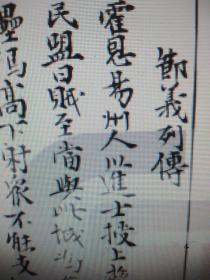 節義列傳
霍恩易州人以進士授上
民盟曰賊至當與此城
壘馬高下射眾不能支